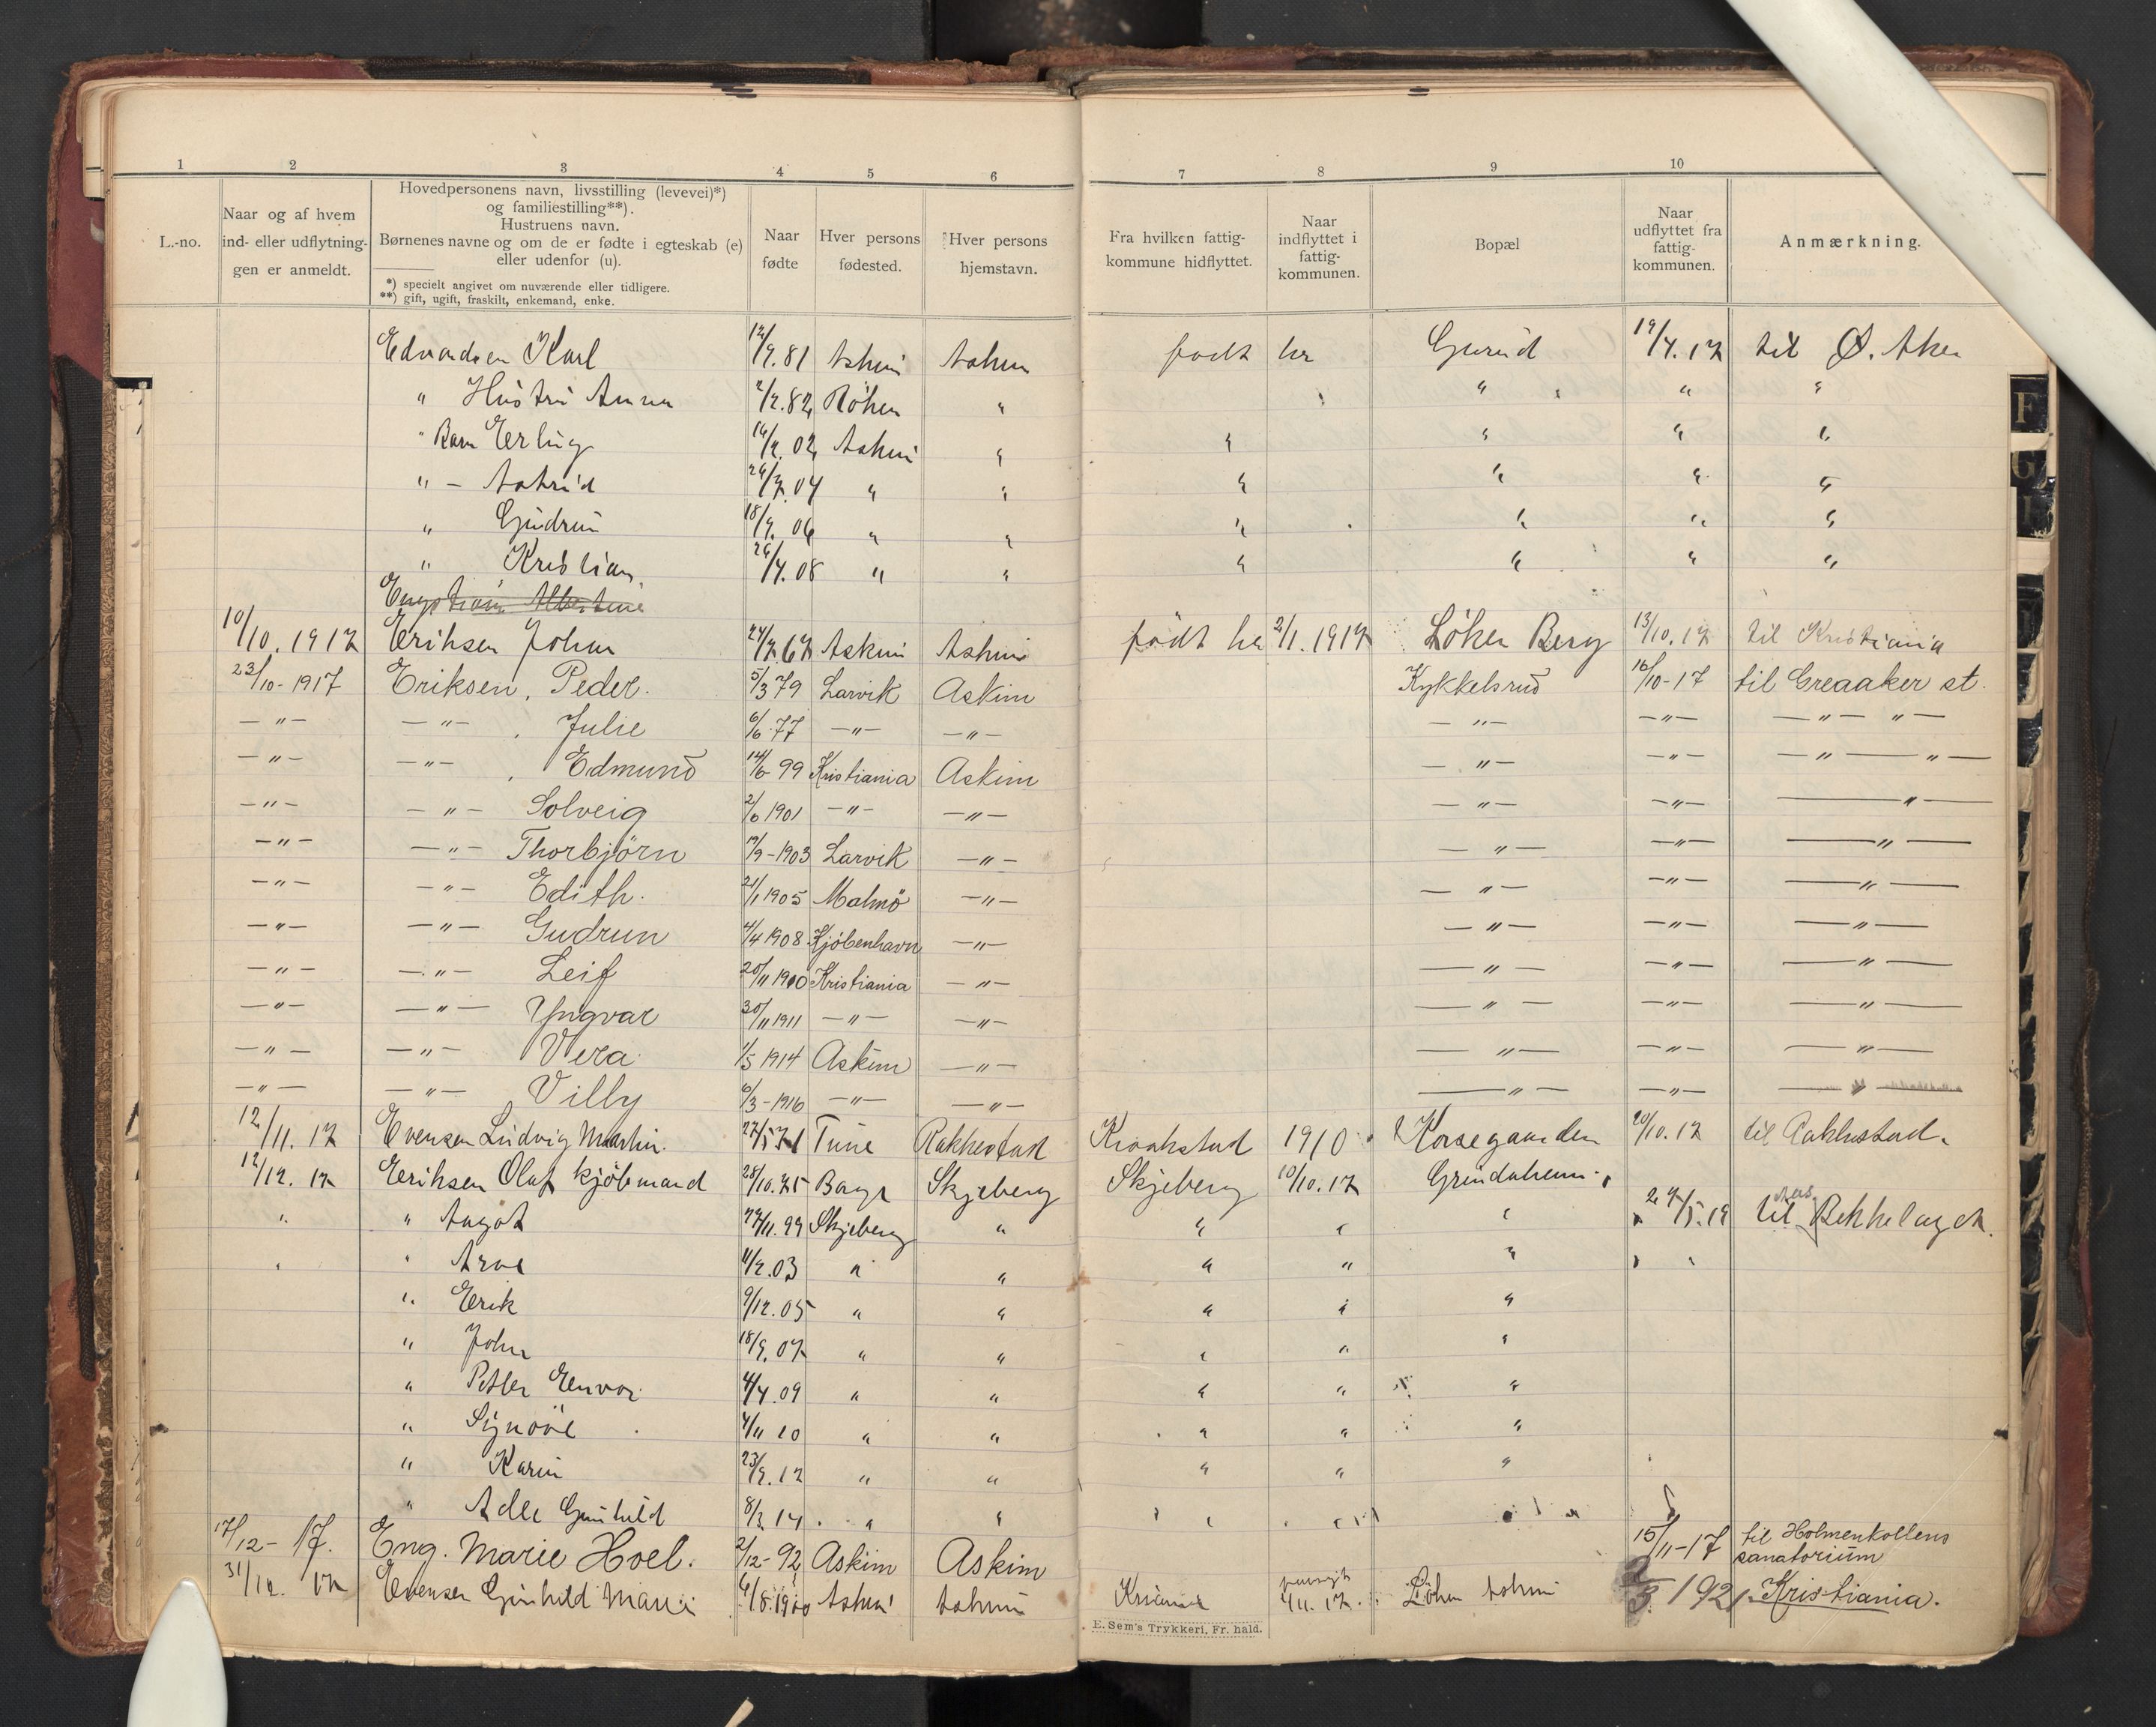 1 2 3 4 5 6 7 8 9 10
L.-no.
Naar og af hvem
ind- eller udflytnin-
gen er anmeldt.
Hovedpersonens navn, livsstilling (levevei)*)
og familiestilling**).
Hustruens navn.
Børnenes navne og om de er fødte i egteskab (e)
eller udenfor (u).
*) specielt angivet om nuværende eller tidligere.
**) gift, ugift, fraskilt, enkemand, enke.
Naar
fødte
Hver persons
fødested.
Hver persons
hjemstavn.
Fra hvilken fattig-
kommune hidflyttet.
Naar
indflyttet i
fattig-
kommunen.
Bopæl
Naar
udflyttet fra
fattig-
kommunen.
Anmærkning.
Edvardsen Karl 12/9.81 Askim Askim født her 19/4.17 til Ø. Aker
" Hustru Anna 2/2.82 Röken " " " "
" Barn Erling 02 Askim " " " " "
" - Astrid 04 " " " " " "
" Gudrun 18/9.06 " " " " " "
" Kristian 26/4.08 " " " " " "
Engström Albertine
10/10.1917 Eriksen Johan 24/7.67 Askim Askim født her 2/1.1917 Löken Berg 13/10.17 til Kristiania
23/10-1917 Eriksen, Peder. 5/3 79 Larvik Askim Kykkelsrud 16/10-17 til Greaaker st.
-"- -"- , Julie 6/6.77 -"- -"- -"- -"- -"- "-
-"- -"- , Edmund 14/6-99 Kristiania Askim -"- -"- -"- -"-
-"- -"- Solveig 2/6 1901 -"- -"- -"- -"- -"-
-"- -"- Thorbjörn 19/9-1903 Larvik -"- -"- -"- -"-
-"- -"- Edith. 21/1 1905 Malmö -"- -"- -"- -"-
-"- -"- Gudrun 4/4 1908 Kjöbenhavn -"- -"- -"- -"-
-"- -"- Leif 20/11 1910 Kristiania -"- -"- -"- -"-
-"- -"- Yngvar 30/11 1911 -"- -"- -"- -"- -"-
-"- -"- Vera 1/5 1914 Askim -"- -"- -"- -"-
-"- -"- Villy 6/3-1916 -"- -"- -"- -"- -"-
12/11.17 Evensen Ludvig Martin. 27/5 71 Tune Rakkestad Kraakstad 1910 Korsegaarden 20/10.17 til Rakkestad.
12/12.17 Eriksen Olaf kjöbmand 28/10.75 Skjeberg Skjeberg 10/10.17 Grindaheim
" " Aagot 27/11.99 Skjeberg " " " " 24/5.19 til Bekkelaget.
" " Arne 03 " " " " " "
" Erik 9/12.05 " " " " "
" John 18/9.07 " " " " "
" Petter Einvor 4/4.09 " " " " "
" Synöve 4/11 10 " " " " "
" Karin 23/9.12 " " " " "
" Adle Gunhild 8/3.14 " " " " "
17/12-17. Eng. Marie Hoel. 2/12-92 Askim Askim 15/11-17 til Holmenkollens
sanatorium
31/12.17 Evensen Gunhild Marie 4/8.1900 Askim Askim 4/11.17 Löken Askim 2/3 1921. Kristiania.
E. Sem's Trykkeri, Fr. hald.
F
G